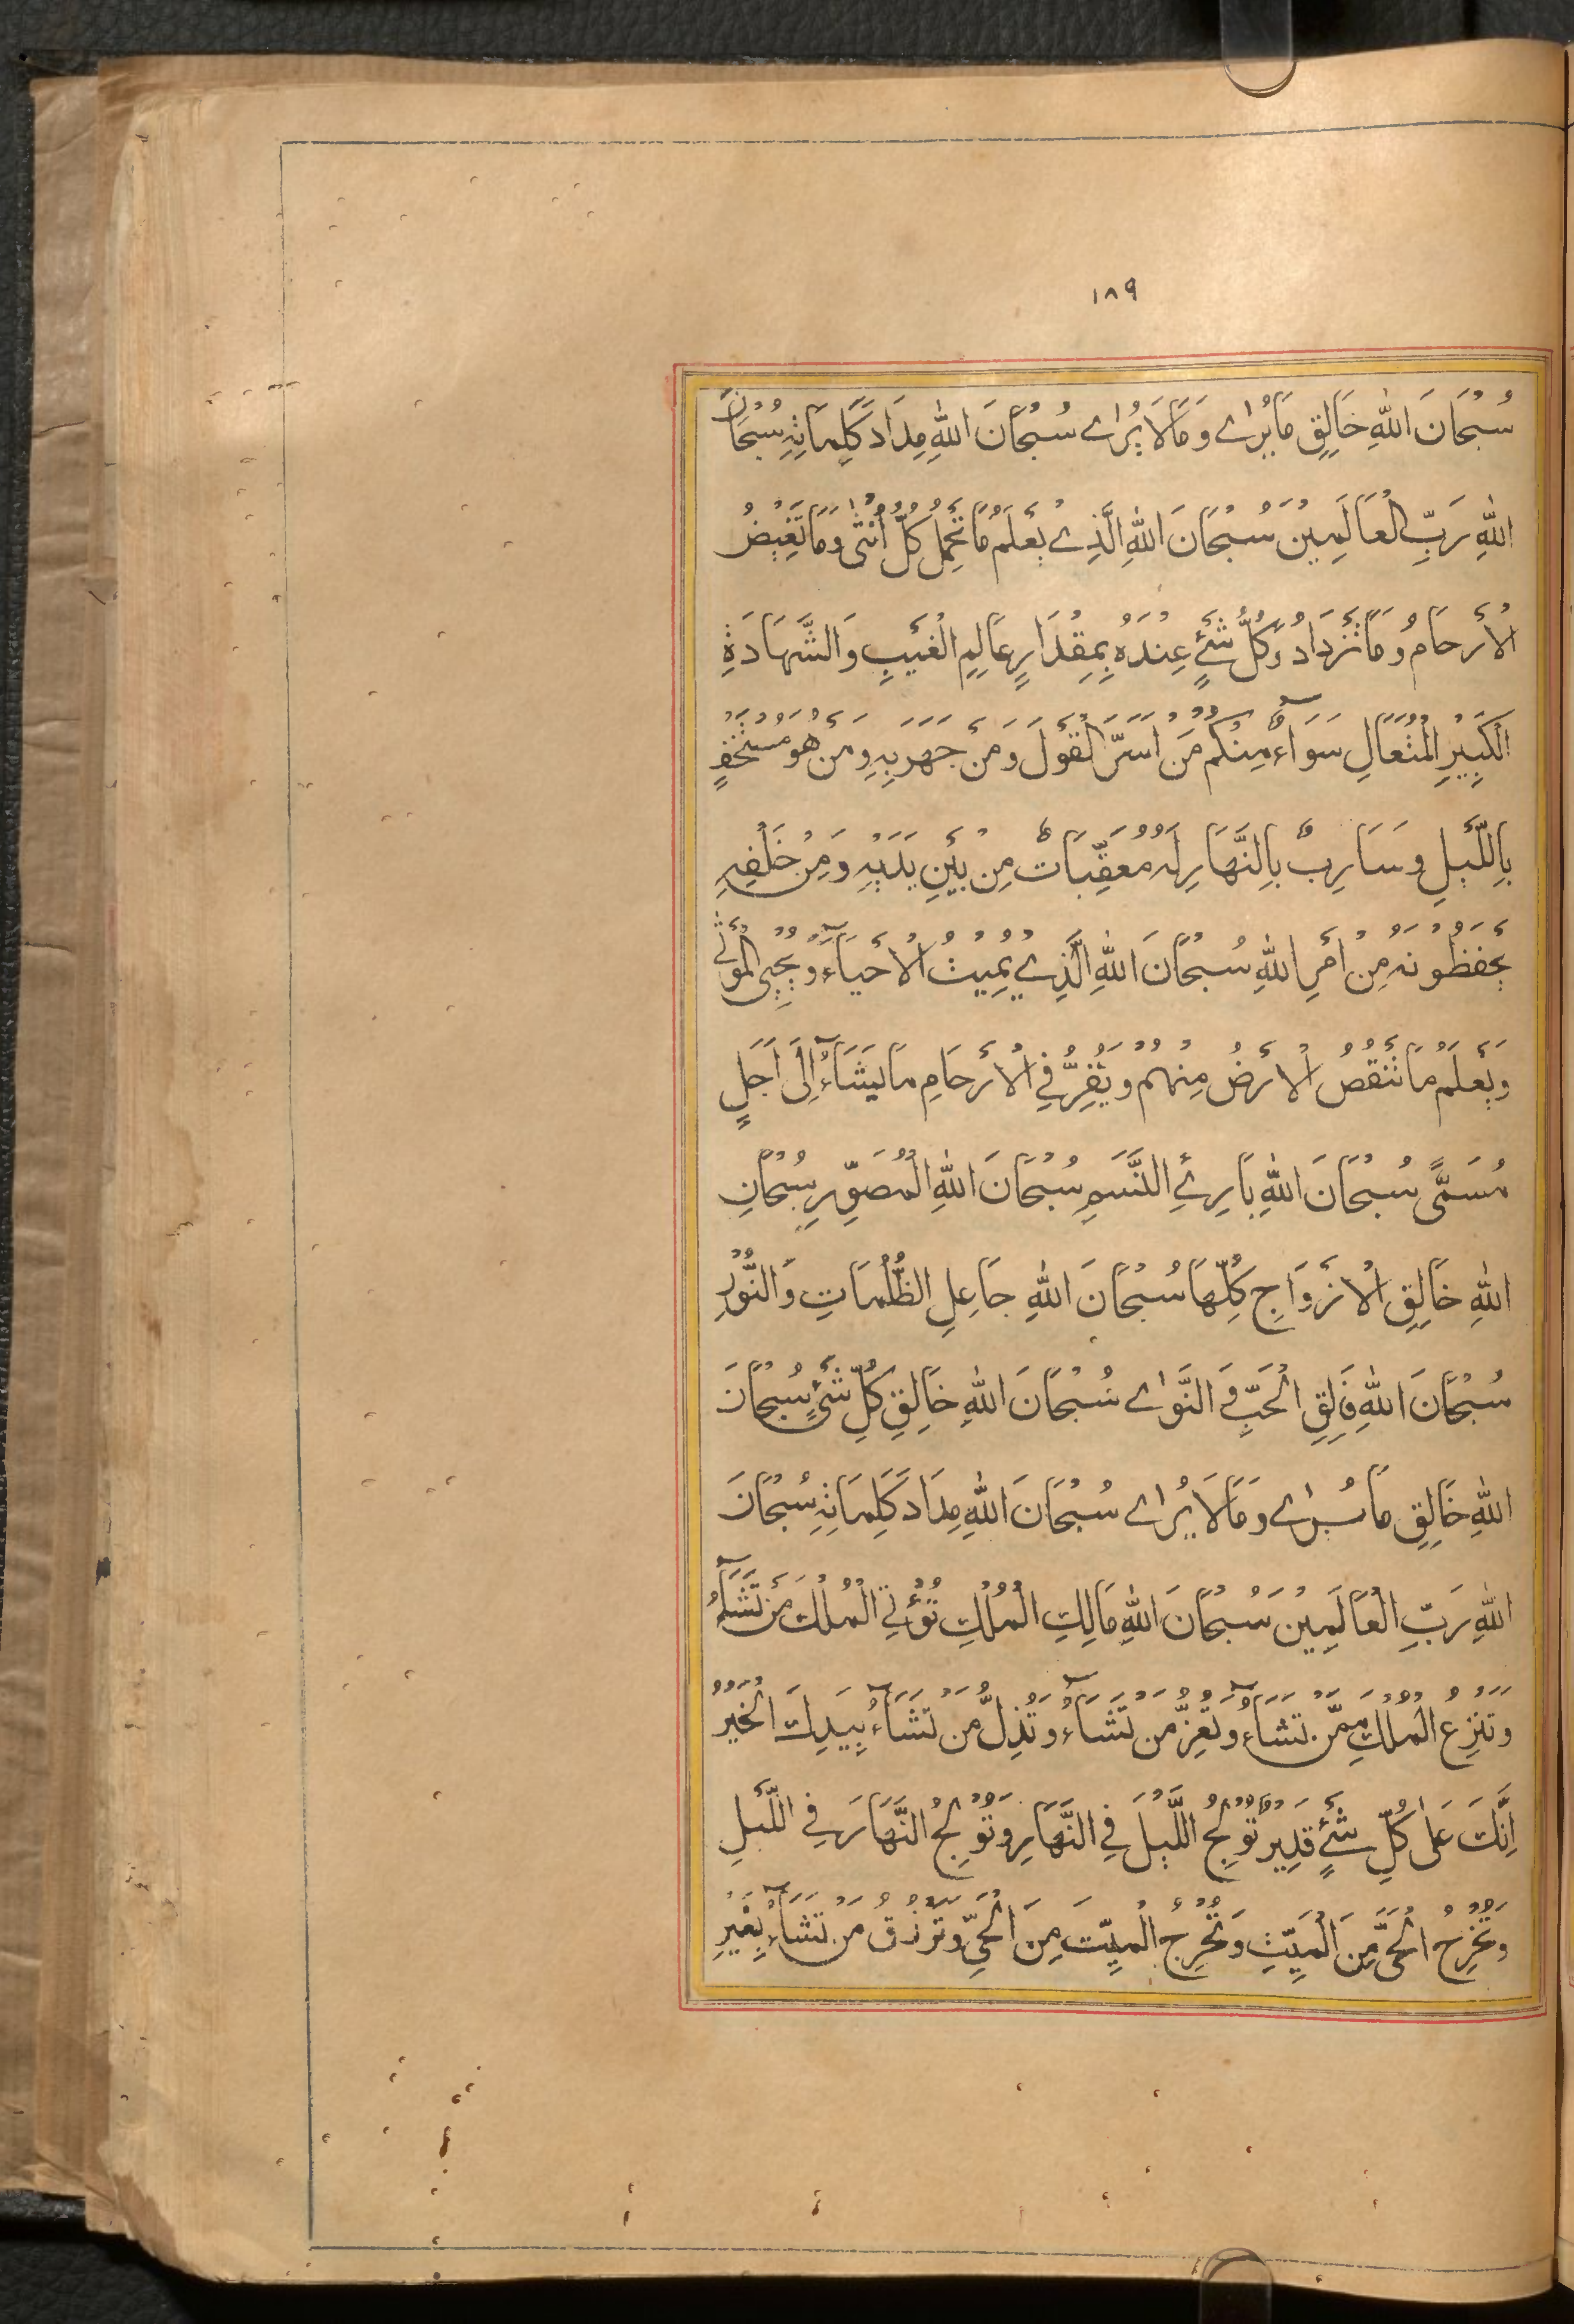 ١٨٩
سُبْحَانَ اللهِ خَالِقِ مَا يُرٰى وَمَا لَا يُرٰى سُبْحَانَ اللهِ مِدَادَ كَلِمَاتِهِ سُبْحَانَ
اللهِ رَبِّ الْعَالَمِيْنَ سُبْحَانَ اللهِ الَّذِيْ يَعْلَمُ مَا تَحْمِلُ كُلُّ اُنْثٰى وَمَا تَغِيْضُ
الْاَرْحَامُ وَمَا تَزْدَادُ وَكُلُّ شَيْءٍ عِنْدَهُ بِمِقْدَارٍ عَالِمِ الْغَيْبِ وَالشَّهَادَةِ
الْكَبِيْرِ الْمُتَعَالِ سَوَآءٌ مِنْكُمْ مَنْ اَسَرَّ الْقَوْلَ وَمَنْ جَهَرَ بِهِ وَمَنْ هُوَ مُسْتَخْفٍ
بِاللَّيْلِ وَسَارِبٌ بِالنَّهَارِ لَهُ مُعَقِّبَاتٌ مِنْ بَيْنِ يَدَيْهِ وَمِنْ خَلْفِهِ
يَحْفَظُوْنَهُ مِنْ اَمْرِ اللهِ سُبْحَانَ اللهِ الَّذِيْ يُمِيْتُ الْاَحْيَآءَ وَيُحْيِى الْمَوْتٰى
وَيَعْلَمُ مَا تَنْقُصُ الْاَرْضُ مِنْهُمْ وَيُقِرُّ فِي الْاَرْحَامِ مَا يَشَآءُ اِلَى اَجَلٍ
مُسَمًّى سُبْحَانَ اللهِ بَارِئِ النَّسَمِ سُبْحَانَ اللهِ الْمُصَوِّرِ سُبْحَانَ
اللهِ خَالِقِ الْاَزْوَاجِ كُلِّهَا سُبْحَانَ اللهِ جَاعِلِ الظُّلُمَاتِ وَالنُّوْرِ
سُبْحَانَ اللهِ فَالِقِ الْحَبِّ وَالنَّوٰى سُبْحَانَ اللهِ خَالِقِ كُلِّ شَيْءٍ سُبْحَانَ
اللهِ خَالِقِ مَا يُرٰى وَمَا لَا يُرٰى سُبْحَانَ اللهِ مِدَادَ كَلِمَاتِهِ سُبْحَانَ
اللهِ رَبِّ الْعَالَمِيْنَ سُبْحَانَ اللهِ مَالِكِ الْمُلْكِ تُؤْتِي الْمُلْكَ مَنْ تَشَآءُ
وَتَنْزِعُ الْمُلْكَ مِمَّنْ تَشَآءُ وَتُعِزُّ مَنْ تَشَآءُ وَتُذِلُّ مَنْ تَشَآءُ بِيَدِكَ الْخَيْرُ
اِنَّكَ عَلٰى كُلِّ شَيْءٍ قَدِيْرٌ تُوْلِجُ اللَّيْلَ فِي النَّهَارِ وَتُوْلِجُ النَّهَارَ فِي اللَّيْلِ
وَتُخْرِجُ الْحَيَّ مِنَ الْمَيِّتِ وَتُخْرِجُ الْمَيِّتَ مِنَ الْحَيِّ وَتَرْزُقُ مَنْ تَشَآءُ بِغَيْرِ